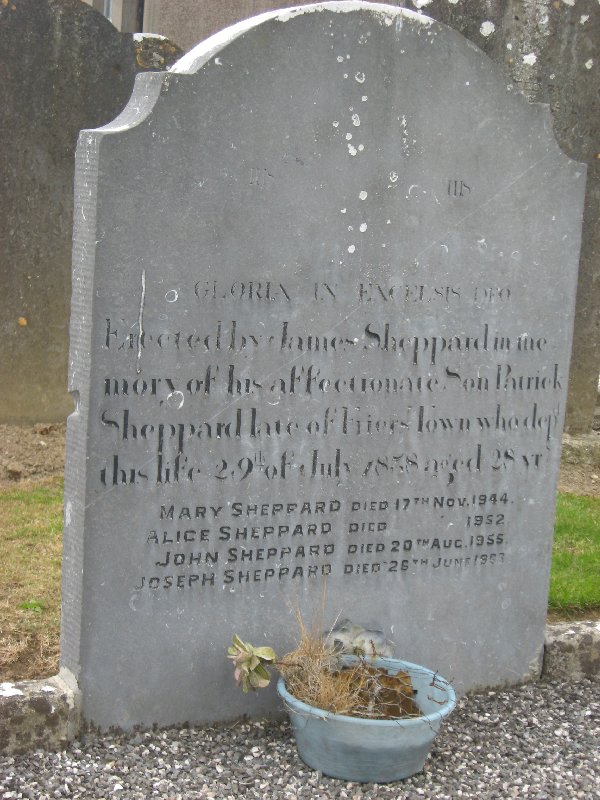 IHS IHS
GLORIA IN EXCELSIS DEO
Erected by James Sheppard in me
mory of his affectionate Son Patrick
Sheppard late of Town who dept
this life 29th of July 1838 aged 28 yrs
MARY SHEPPARD DIED 17TH NOV. 1944.
ALICE SHEPPARD DIED 1952
JOHN SHEPPARD DIED 20TH AUG. 1955.
JOSEPH SHEPPARD DIED 26TH JUNE 1963